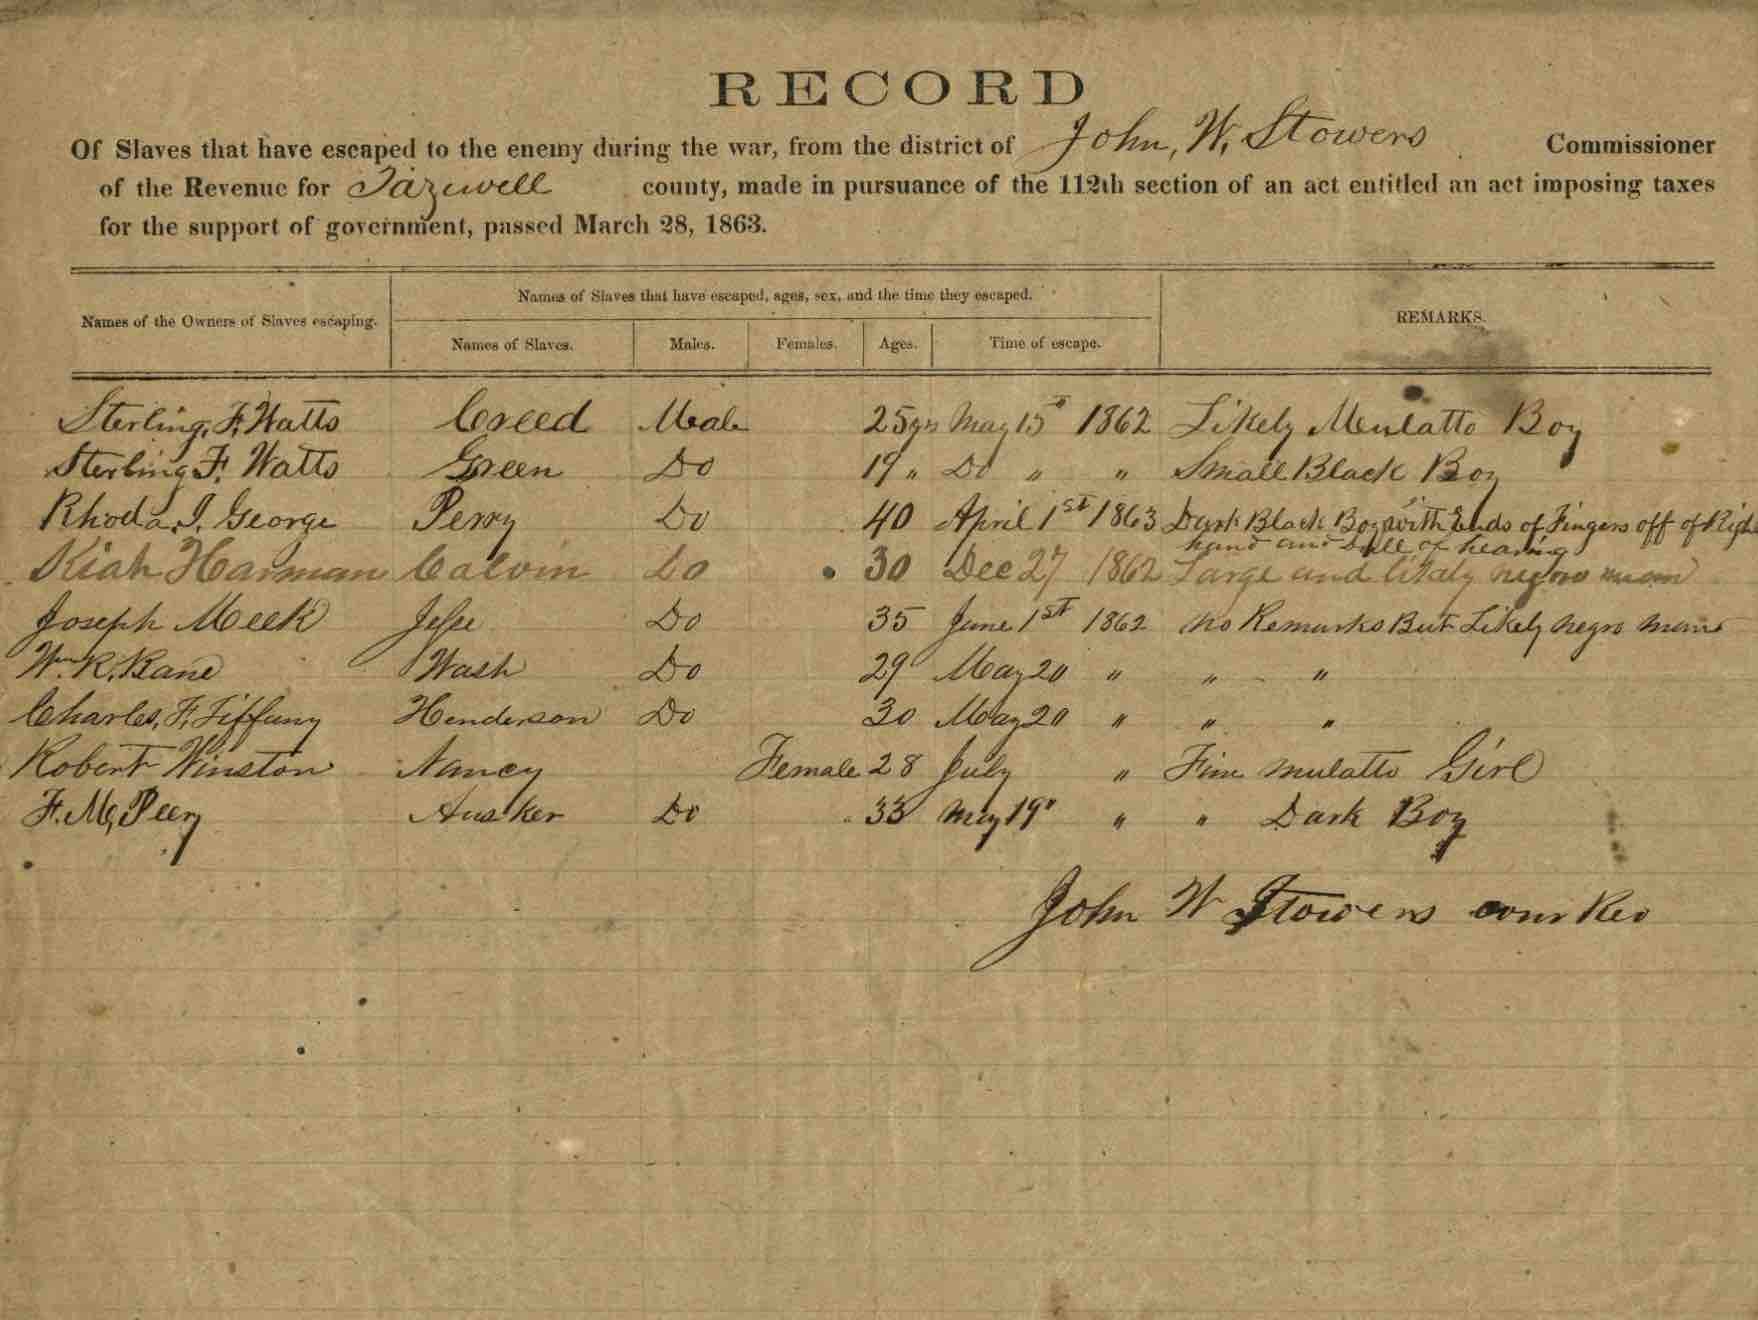 RECORD
Of Slaves that have escaped to the enemy during the war, from the district of John, W. Stowers Commissioner
of the Revenue for Tazewell county, made in pursuance of the 112th section of an act entitled an act imposing taxes
for the support of government, passed March 28, 1863.
Names of the Owners of Slaves escaping. Names of Slaves that have escaped, ages, sex, and the time they escaped. REMARKS.
Names of Slaves. Males. Females. Ages. Time of escape.
Sterling, F. Watts Creed Male 25 yrs May 15th 1862 Likely Mulatto Boy
Sterling F. Watts Green Do 19 " Do " " Small Black Boy
Rhoda, J. George Perry Do 40 April 1st 1863 Dark Black Boy with Ends of Fingers off of Righ
hand and Dull of hearing
Kiah Harman Calvin Do 30 Dec 27 1862 Large and likely negro man
Joseph Meek Jesse Do 35 June 1st 1862 no Remarks But Likely negro man
Wm. R. Bane Wash Do 29 May 20 " " "
Charles, F. Tiffany Henderson Do 30 May 20 " " "
Robert Winston Nancy Female 28 July " Fine mulatto Girl
F. M, Peery Ausker Do 33 May 19" " " Dark Boy
John W Stowers com Rev